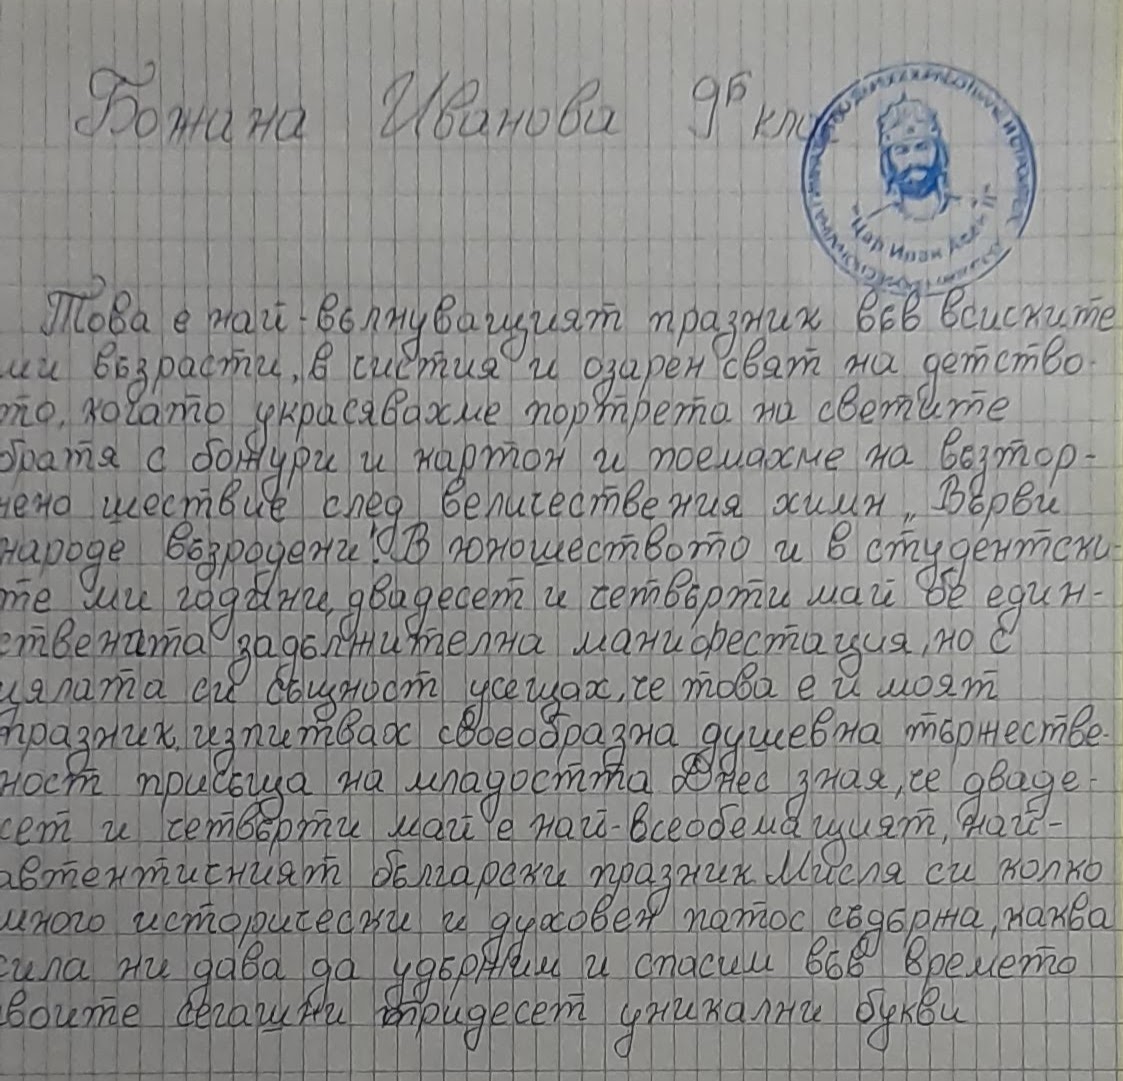 Божана Иванова 9Б кла
"Цар Иван Асен II"
Това е най-вълнуващият празник във всиските
ми възрасти, в систия и озарен свят на детство-
то, когато украсявахме портрета на светите
братя с божури и картон и поемахме на възтор-
жено шествие след величествения химн „Върви
народе възродени"! В юношеството и в студентски-
те ми години, двадесет и четвърти май бе един-
ствената задължителна манифестация, но с
цялата си същност усещах, че това е и моят
празник, изпитвах своеобразна душевна тържестве-
ност присъща на младостта Днес зная, че дваде-
сет и четвърти май е най-всеобемащият, най-
автентисният български празник Мисля си колко
много исторически и духовен патос съдържа, каква
сила ни дава да удържим и спасим във времето
своите сегашни тридесет уникални букви